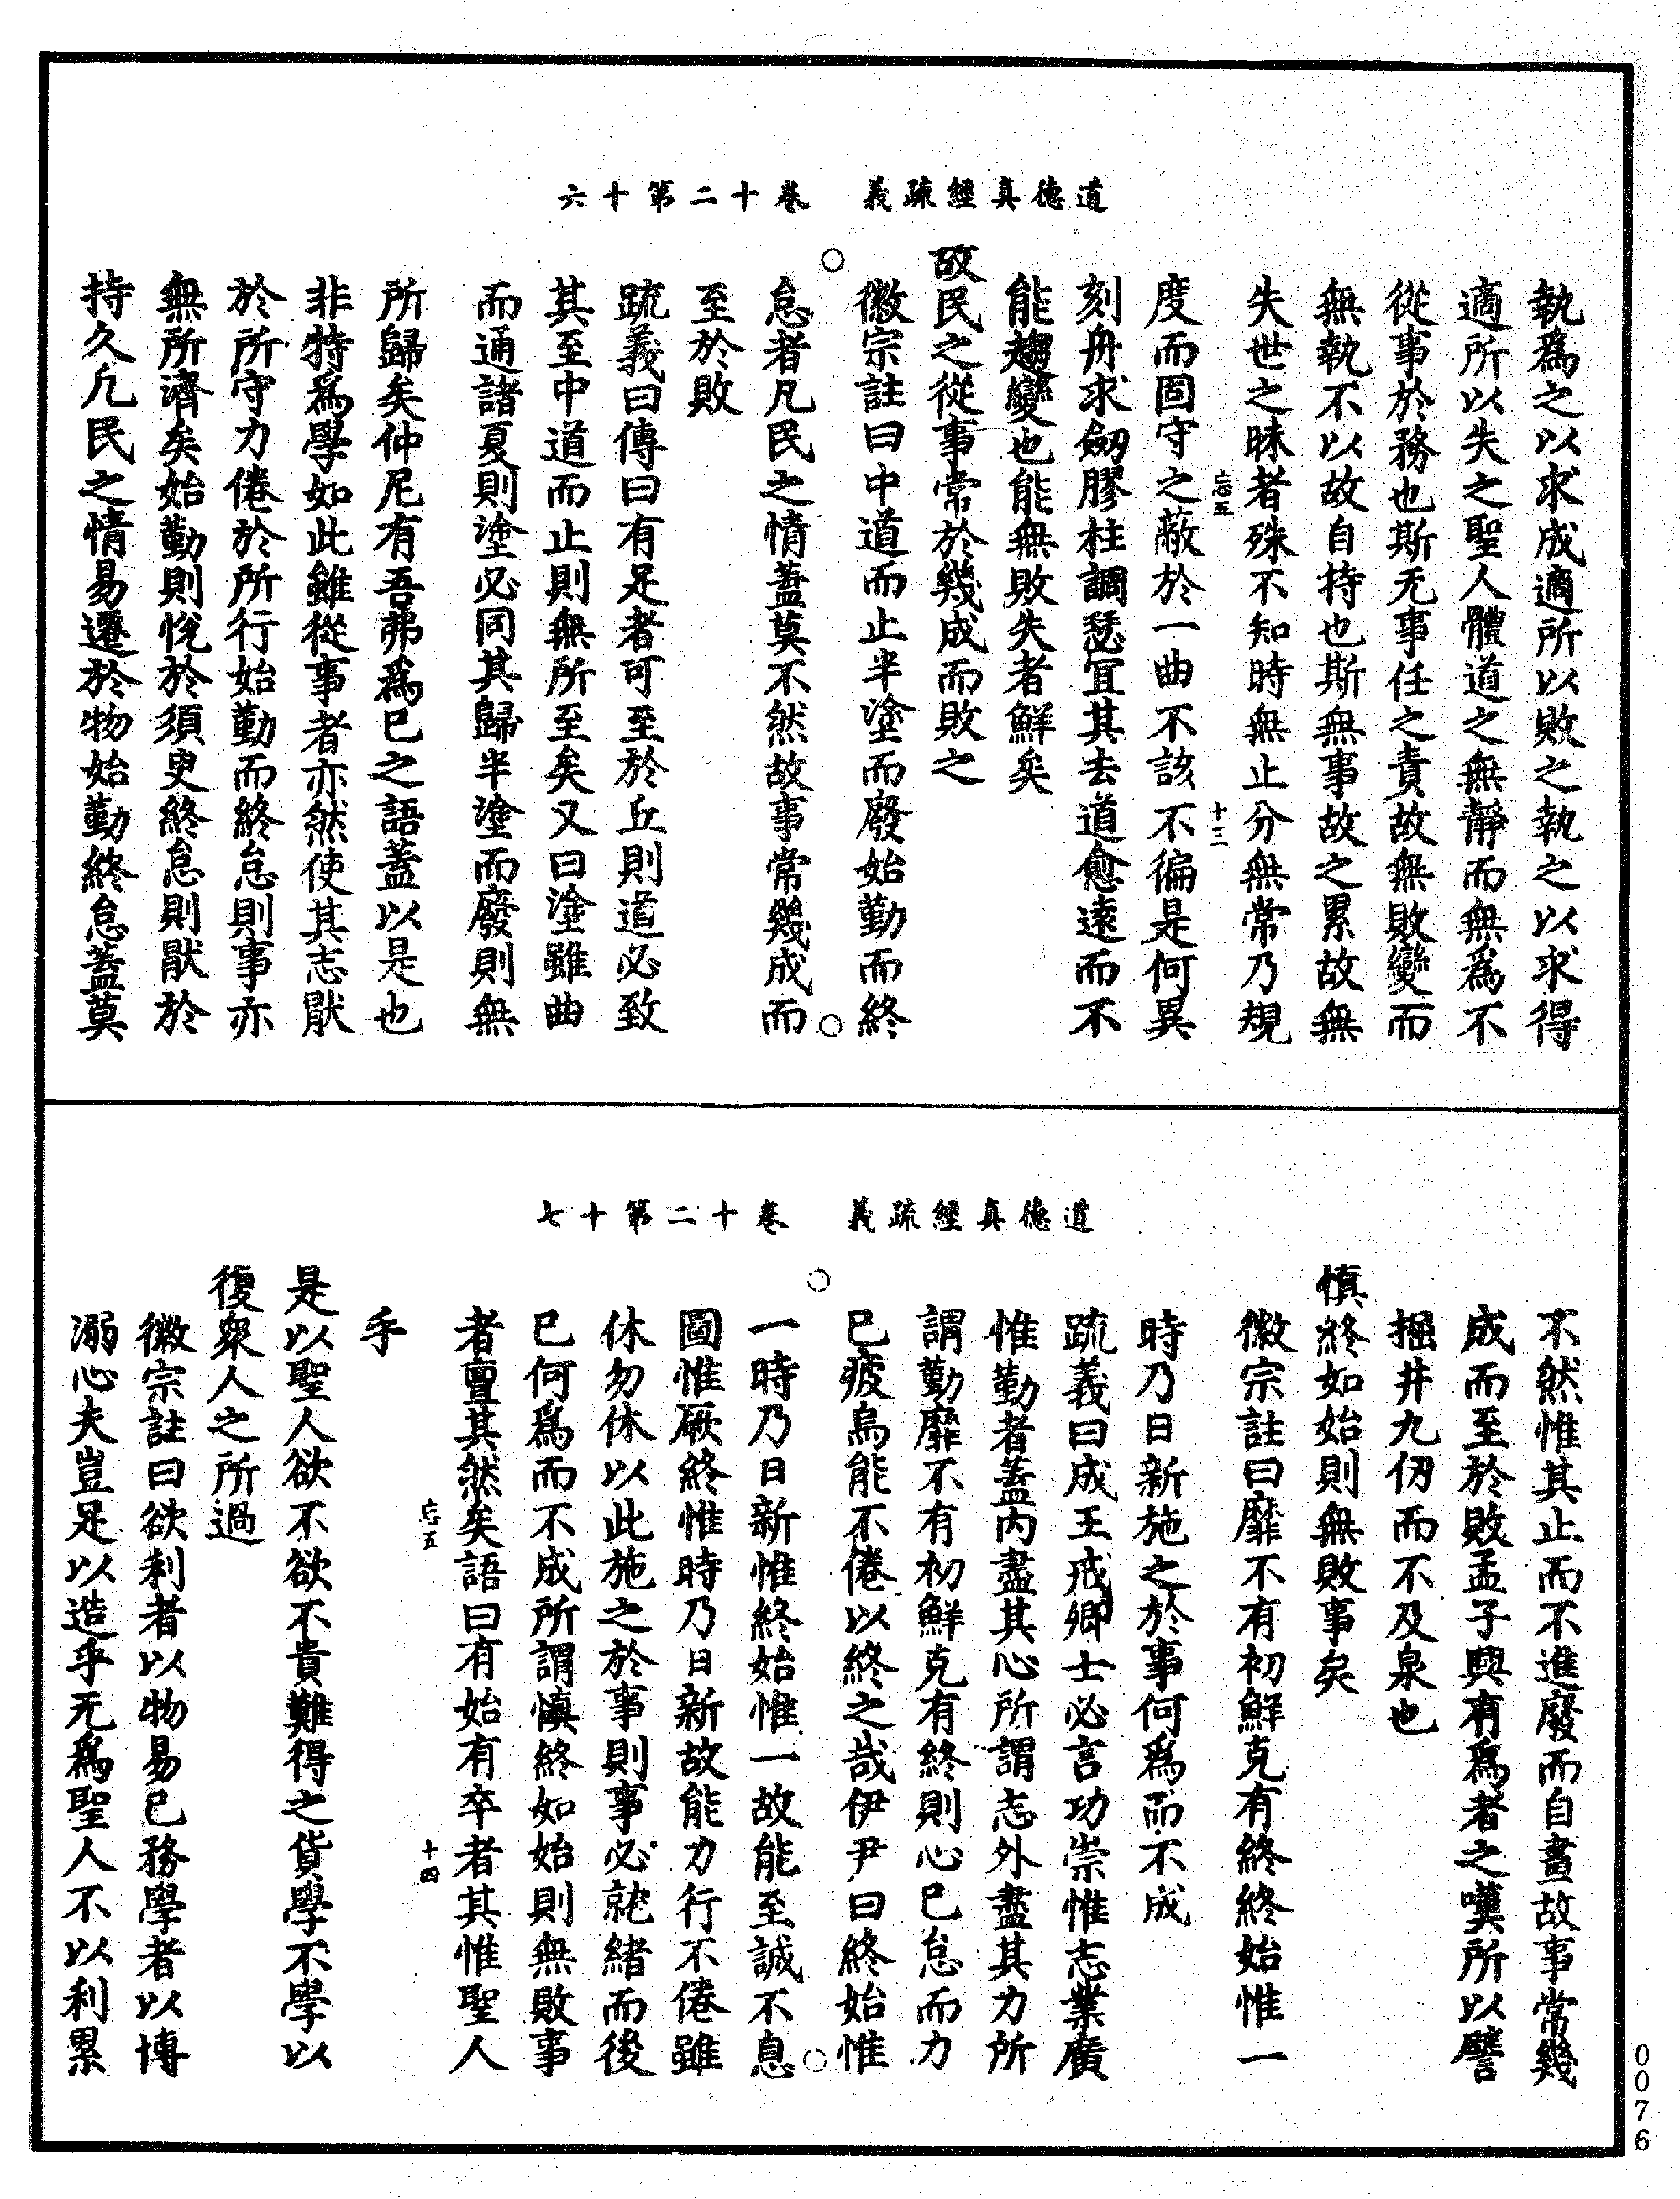 道德真經疏義　卷十二第十六
執爲之以求成適所以敗之執之以求得
適所以失之聖人體道之無靜而無爲不
從事於務也斯无事任之責故無敗變而
無執不以故自持也斯無事故之累故無
失世之昧者殊不知時無止分無常乃規
忘五　十三
度而固守之蔽於一曲不該不徧是何異
刻舟求劒膠柱調瑟宜其去道愈遠而不
能趨變也能無敗失者鮮矣
故民之從事常於幾成而敗之
徽宗註曰中道而止半塗而廢始勤而終
怠者凡民之情蓋莫不然故事常幾成而
至於敗
疏義曰傳曰有足者可至於丘則道必致
其至中道而止則無所至矣又曰塗雖曲
而通諸夏則塗必同其歸半塗而廢則無
所歸矣仲尼有吾弗爲已之語蓋以是也
非特爲學如此雖從事者亦然使其志猒
於所守力倦於所行始勤而終怠則事亦
無所濟矣始勤則悅於須臾終怠則猒於
持久凡民之情易遷於物始勤終怠蓋莫
道德真經疏義　卷十二第十七
不然惟其止而不進廢而自畫故事常幾
成而至於敗孟子興有爲者之嘆所以譬
掘井九仞而不及泉也
慎終如始則無敗事矣
徽宗註曰靡不有初鮮克有終終始惟一
時乃日新施之於事何爲而不成
疏義曰成王戒卿士必言功崇惟志業廣
惟勤者蓋内盡其心所謂志外盡其力所
謂勤靡不有初鮮克有終則心已怠而力
已疲烏能不倦以終之哉伊尹曰終始惟
一時乃日新惟終始惟一故能至誠不息
圖惟厥終惟時乃日新故能力行不倦雖
休勿休以此施之於事則事必就緒而後
已何爲而不成所謂慎終如始則無敗事
者亶其然矣語曰有始有卒者其惟聖人
忘五　十四
乎
是以聖人欲不欲不貴難得之貨學不學以
復衆人之所過
徽宗註曰欲利者以物易已務學者以博
溺心夫豈足以造乎无爲聖人不以利累
0076